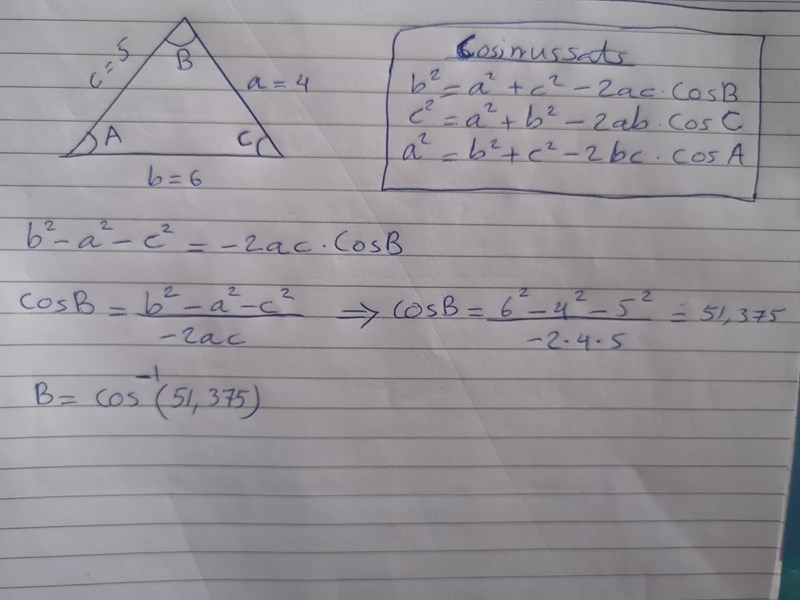 c=5
B
a=4
A
C
b=6
Cosinussats
b²=a²+c²-2ac·cosB
c²=a²+b²-2ab·cosC
a²=b²+c²-2bc·cosA
b²-a²-c²=-2ac·cosB
cosB=(b²-a²-c²)/(-2ac) ⇒ cosB=(6²-4²-5²)/(-2·4·5)=51,375
B=cos⁻¹(51,375)